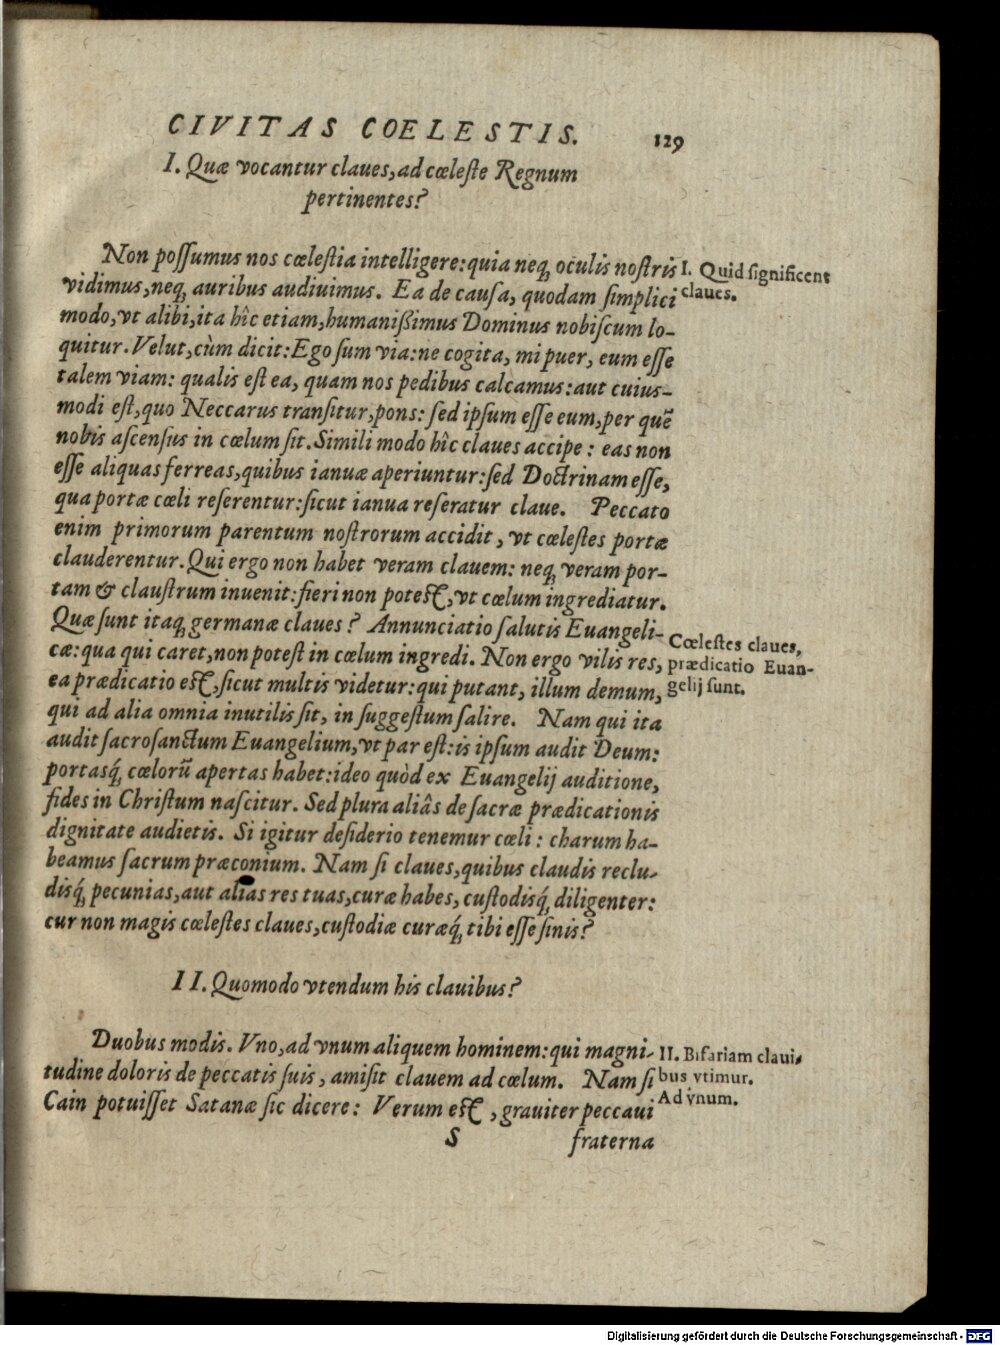 CIVITAS COELESTIS. 129
I. Quæ vocantur claues, ad cœleſte Regnum
pertinentes?
Non poſſumus nos cœleſtia intelligere: quia neq́ oculis noſtris
vidimus, neq́ auribus audiuimus. Ea de cauſa, quodam ſimplici
modo, vt alibi, ita hîc etiam, humanißimus Dominus nobiſcum lo-
quitur. Velut, cùm dicit: Ego ſum via: ne cogita, mi puer, eum eſſe
talem viam: qualis eſt ea, quam nos pedibus calcamus: aut cuius-
modi eſt, quo Neccarus tranſitur, pons: ſed ipſum eſſe eum, per quẽ
nobis aſcenſus in cœlum ſit. Simili modo hîc claues accipe: eas non
eſſe aliquas ferreas, quibus ianuæ aperiuntur: ſed Doctrinam eſſe,
qua portæ cœli reſerentur: ſicut ianua reſeratur claue. Peccato
enim primorum parentum noſtrorum accidit, vt cœleſtes portæ
clauderentur. Qui ergo non habet veram clauem: neq́ veram por-
tam & clauſtrum inuenit: fieri non poteſt, vt cœlum ingrediatur.
Quæ ſunt itaq́ germanæ claues? Annunciatio ſalutis Euangeli-
cæ: qua qui caret, non poteſt in cœlum ingredi. Non ergo vilis res,
ea prædicatio eſt, ſicut multis videtur: qui putant, illum demum,
qui ad alia omnia inutilis ſit, in ſuggeſtum ſalire. Nam qui ita
audit ſacroſanctum Euangelium, vt par eſt: is ipſum audit Deum:
portasq́ cœlorũ apertas habet: ideo quòd ex Euangelij auditione,
fides in Chriſtum naſcitur. Sed plura aliâs de ſacræ prædicationis
dignitate audietis. Si igitur deſiderio tenemur cœli: charum ha-
beamus ſacrum præconium. Nam ſi claues, quibus claudis reclu-
disq́ pecunias, aut alias res tuas, curæ habes, cuſtodisq́ diligenter:
cur non magis cœleſtes claues, cuſtodiæ curæq́ tibi eſſe ſinis?
I. Quid ſignificent
claues.
Cœleſtes claues,
prædicatio Euan-
gelij ſunt.
II. Quomodo vtendum his clauibus?
Duobus modis. Vno, ad vnum aliquem hominem: qui magni-
tudine doloris de peccatis ſuis, amiſit clauem ad cœlum. Nam ſi
Cain potuiſſet Satanæ ſic dicere: Verum eſt, grauiter peccaui
II. Bifariam claui-
bus vtimur.
Ad vnum.
S fraterna
Digitalisierung gefördert durch die Deutsche Forschungsgemeinschaft - DFG